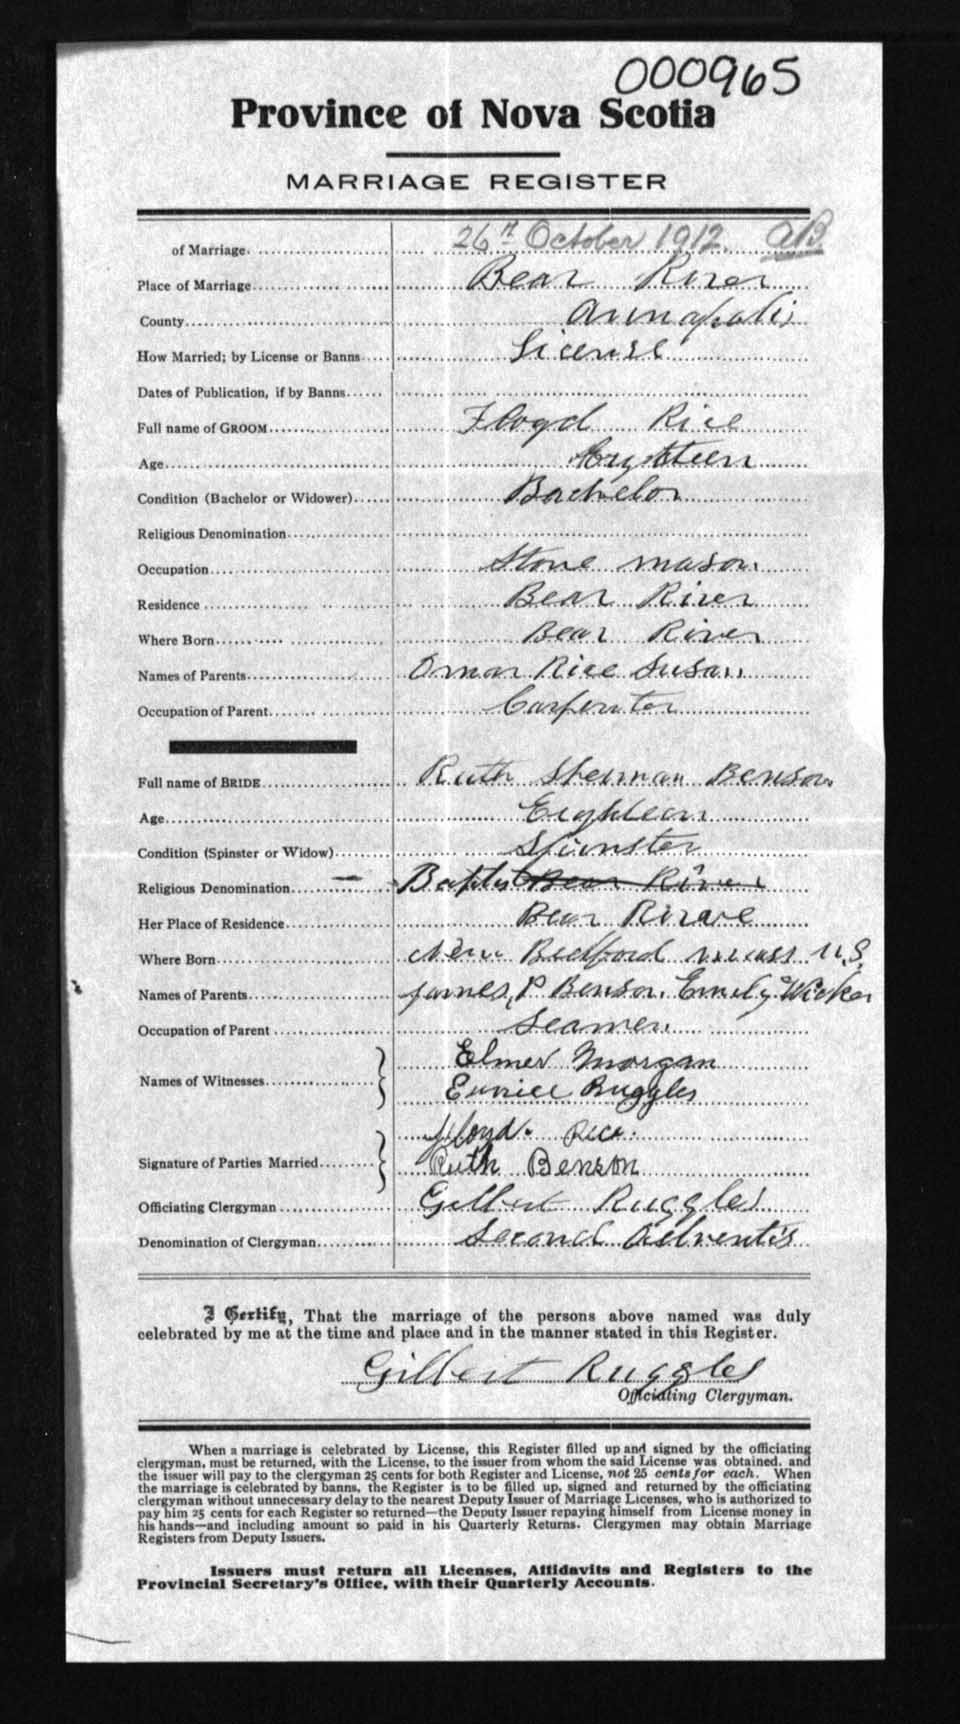 000965
Province of Nova Scotia
MARRIAGE REGISTER
of Marriage. 26th October 1912. AB
Place of Marriage Bear River
County Annapolis
How Married; by License or Banns License
Dates of Publication, if by Banns
Full name of GROOM Floyd Rice
Age
Condition (Bachelor or Widower) Bachelor
Religious Denomination
Occupation Stone mason
Residence Bear River
Where Born Bear River
Names of Parents Omar Rice Susan
Occupation of Parent Carpenter
Full name of BRIDE Ruth Sherman Benson
Age Eighteen
Condition (Spinster or Widow) Spinster
Religious Denomination — Baptist Bear River
Her Place of Residence Bear
Where Born New Bedford mass U.S.
Names of Parents James P Benson. Emily Wicker
Occupation of Parent Seamen
Names of Witnesses } Elmer Morgan
Eunice Ruggles
Signature of Parties Married } floyd. Rice.
Ruth Benson
Officiating Clergyman Gilbert Ruggles
Denomination of Clergyman Second Adventis
I Certify, That the marriage of the persons above named was duly
celebrated by me at the time and place and in the manner stated in this Register.
Gilbert Ruggles
Officiating Clergyman.
When a marriage is celebrated by License, this Register filled up and signed by the officiating
clergyman, must be returned, with the License, to the issuer from whom the said License was obtained, and
the issuer will pay to the clergyman 25 cents for both Register and License, not 25 cents for each. When
the marriage is celebrated by banns, the Register is to be filled up, signed and returned by the officiating
clergyman without unnecessary delay to the nearest Deputy Issuer of Marriage Licenses, who is authorized to
pay him 25 cents for each Register so returned—the Deputy Issuer repaying himself from License money in
his hands—and including amount so paid in his Quarterly Returns. Clergymen may obtain Marriage
Registers from Deputy Issuers.
Issuers must return all Licenses, Affidavits and Registers to the
Provincial Secretary's Office, with their Quarterly Accounts.